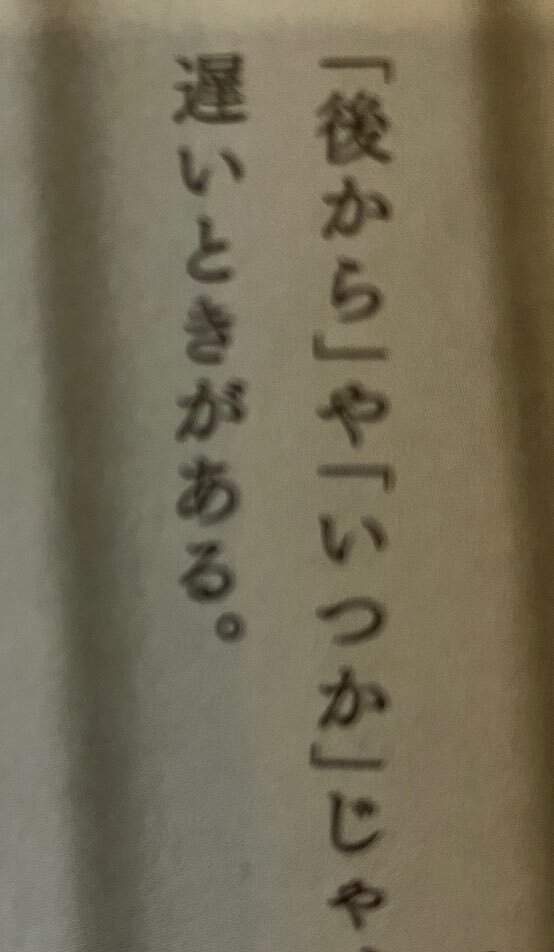 「後から」や「いつか」じゃ
遅いときがある。